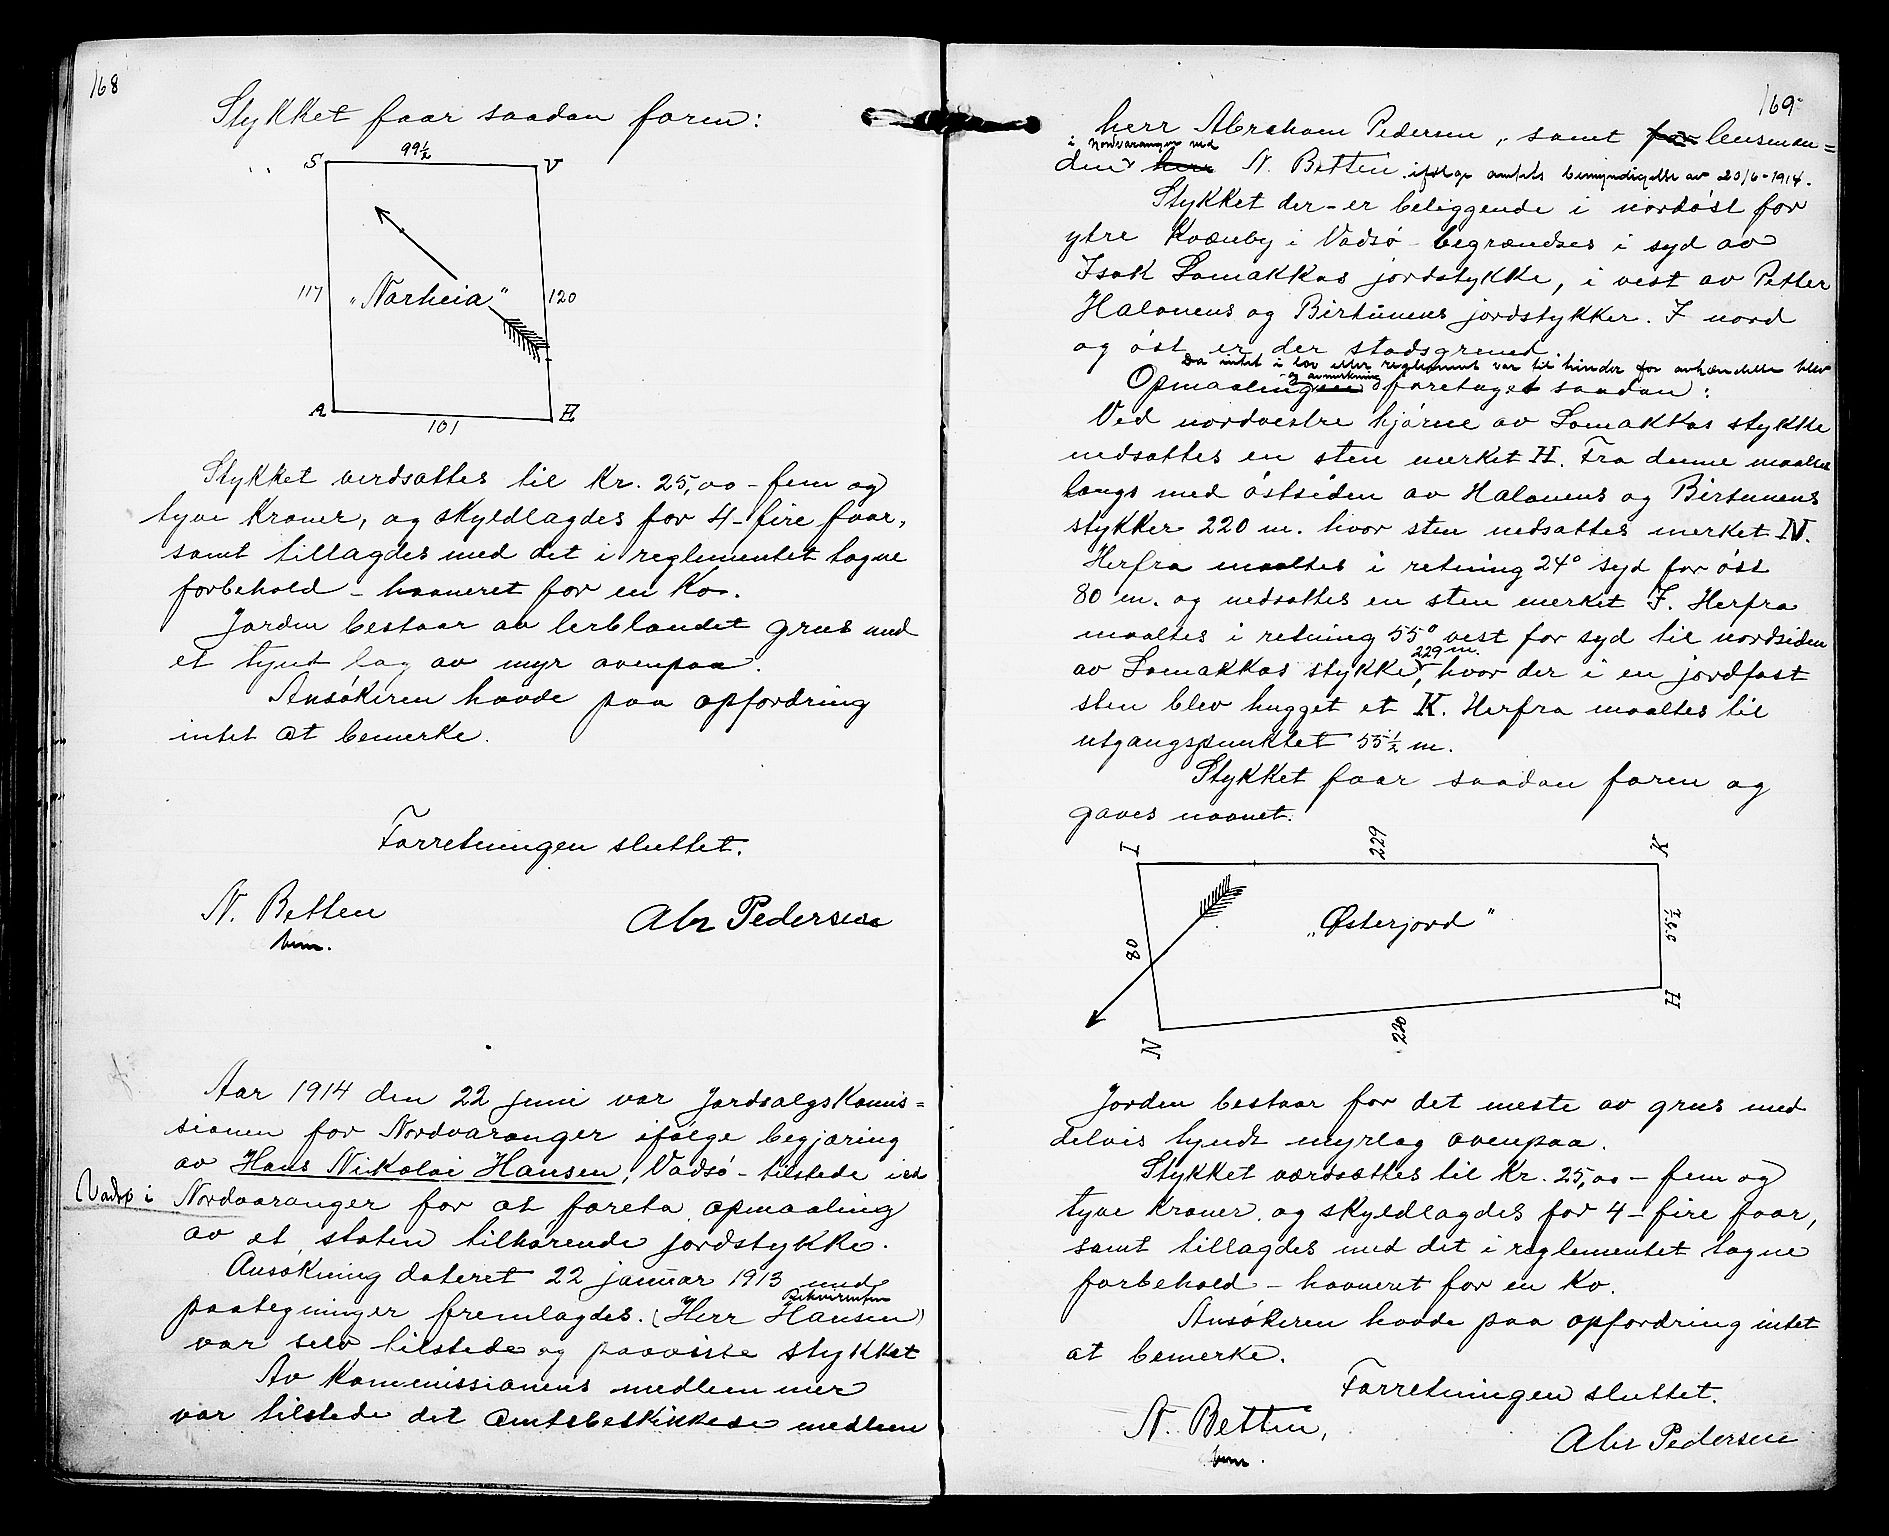 168
Stykket faar saadan form:
S 99½ V
117 „Norheia" 120
A 101 E
Stykket verdsattes til Kr. 25,00 - fem og
tyve Kroner, og skyldlagdes for 4 - fire faar,
samt tillagdes med det i reglementet tagne
forbehold - havneret for en Ko.
Jorden bestaar av lerblandet grus med
et tyndt lag av myr ovenpaa.
Ansökeren havde paa opfordring
intet at bemerke.
Forretningen sluttet.
N. Betten Abr Pedersen
Aar 1914 den 22 juni var Jordsalgskomis=
sionen for Nordvaranger ifölge begjæring
av Hans Nikolai Hansen, Vadsö - tilstede i
Vadsø i Nordvaranger for at foreta opmaaling
av et staten tilhörende jordstykke.
Ansökning dateret 22 januar 1913 med
Rekvirenten
paategninger fremlagdes. (Herr Hansen)
var selv tilstede og paaviste stykket
Av Kommissionens medlemmer
var tilstede det amtsbeskikkede medlem
169
herr Abraham Pedersen, samt for lensman=
i Nordvaranger ved
den herr N. Betten ifölge amtets bemyndigelse av 20/6-1914.
Stykket der - er beliggende i nordöst for
ytre Kvænby i Vadsö - begrændses i syd av
Isak Lamakkas jordstykke, i vest av Petter
Halonens og Birtünens jordstykker. I nord
og öst er der stadsgrund.
Da intet i lov eller reglement var til hinder for avhændelse blev
og avmerkning
Opmaaling foretaget saadan:
Ved nordvestre hjörne av Lamakkas stykke
nedsattes en sten merket H. Fra denne maaltes
langs med östsiden av Halonens og Birtunens
stykker 220 m. hvor sten nedsattes merket N.
Herfra maaltes i retning 24° syd for öst
80 m. og nedsattes en sten merket I. Herfra
maaltes i retning 55° vest for syd til nordsiden
229 m.
av Lamakkas stykke, hvor der i en jordfast
sten blev hugget et K. Herfra maaltes til
utgangspunktet 55½ m.
Stykket faar saadan form og
gaves navnet.
I 229 K
80 „Østerjord" 55.5
N 220 H
Jorden bestaar for det meste av grus med
delvis tyndt myrlag ovenpaa.
Stykket værdsættes til Kr. 25,00 - fem og
tyve Kroner, og skyldlagdes for 4 - fire faar,
samt tillagdes med det i reglementet tagne
forbehold - havneret for en Ko.
Ansökeren havde paa opfordring intet
at bemerke.
Forretningen sluttet.
N. Betten, Abr Pedersen